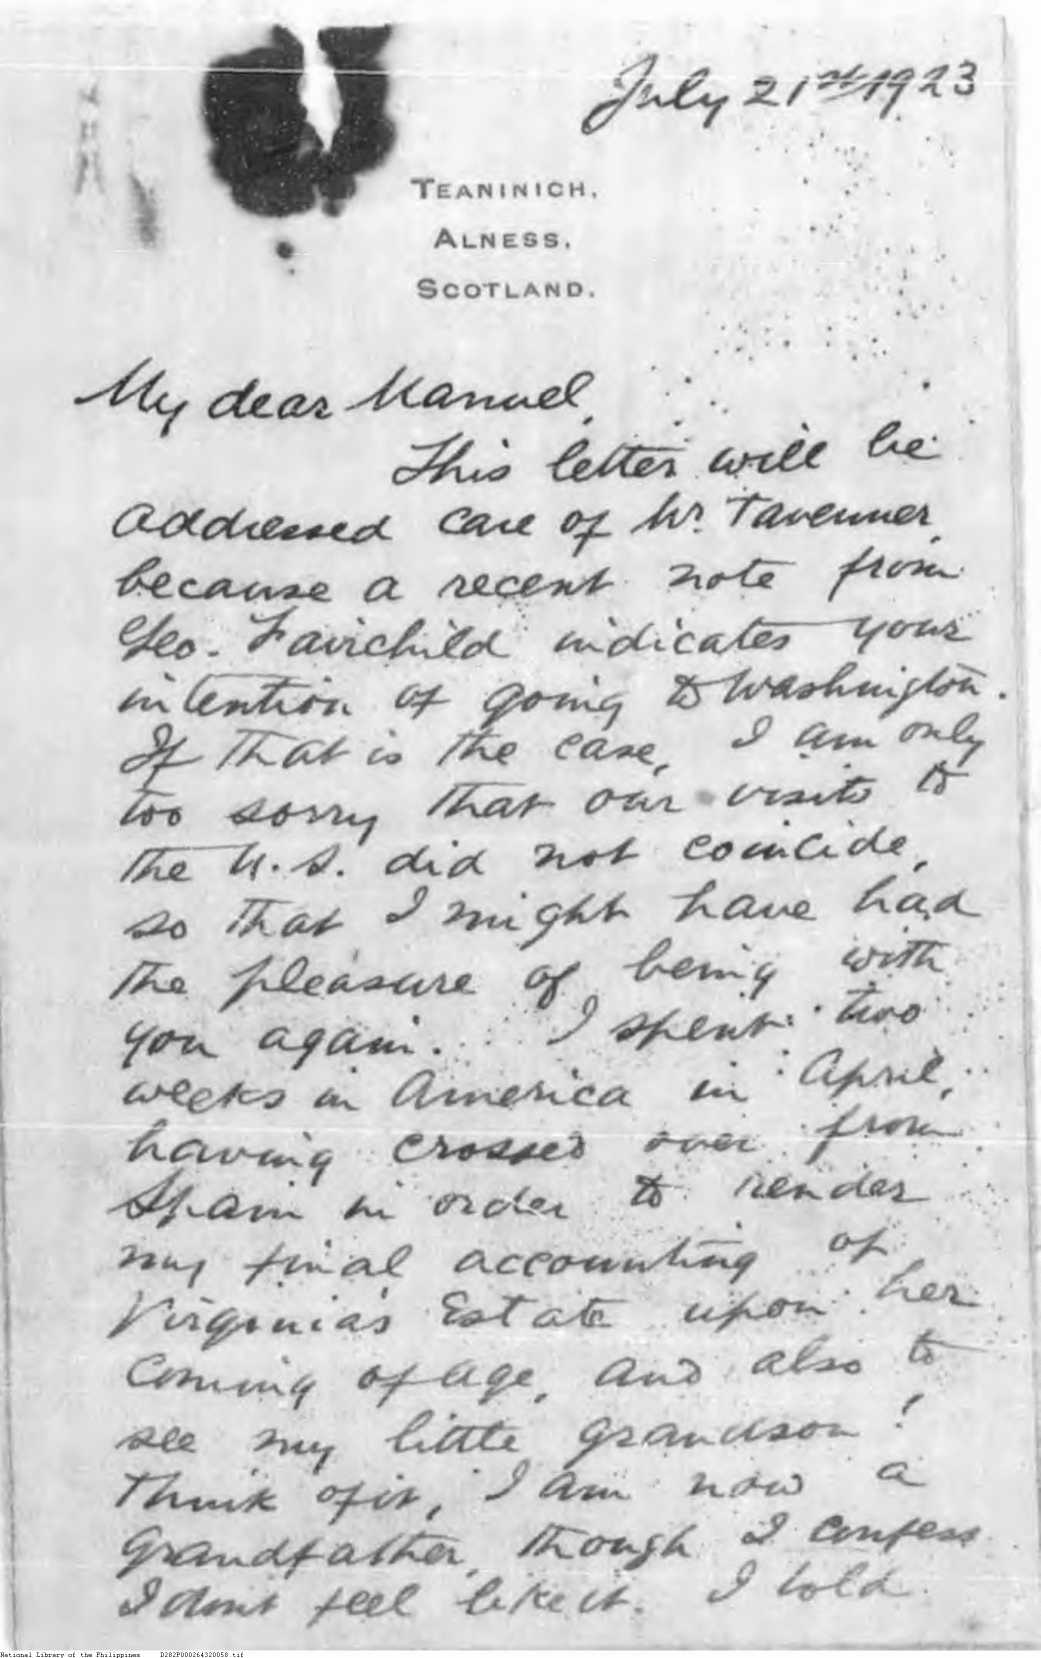 July 21st 1923
TEANINICH,
ALNESS,
SCOTLAND.
My dear Manuel,
This letter will be
addressed care of Mr. Tavenner,
because a recent note from
Geo. Fairchild indicates your
intention of going to Washington.
If that is the case, I am only
too sorry that our visits to
the U.S. did not coincide,
so that I might have had
the pleasure of being with
you again. I spent two
weeks in America in April,
having crossed over from
Spain in order to render
my final accounting of
Virginia's Estate upon her
coming of age, and also to
see my little grandson!
Think of it, I am now a
grandfather, though I confess
I dont feel like it. I told
National Library of the Philippines D282P000264320058.tif